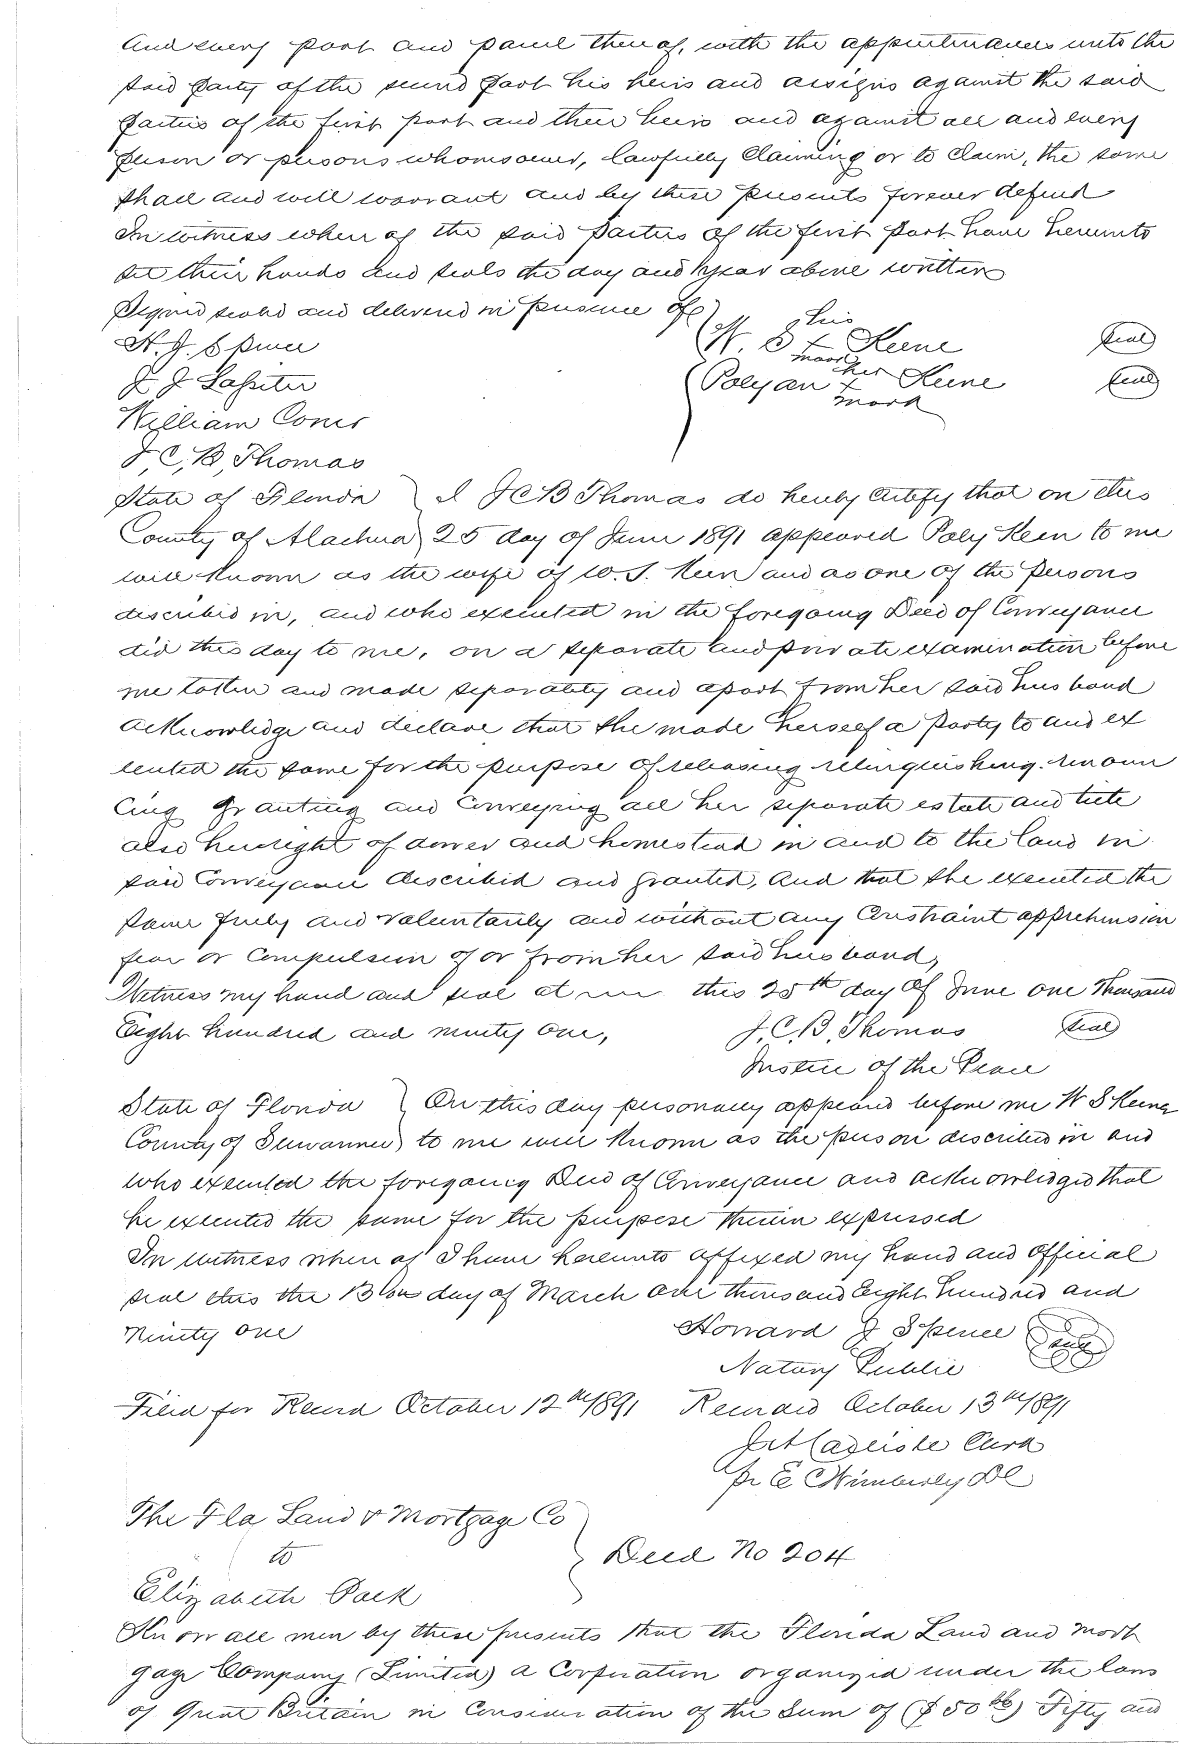 and every part and parcel thereof, with the appurtenances unto the
said party of the second part his heirs and assigns against the said
parties of the first part and their heirs and against all and every
person or persons whomsoever, lawfully claiming or to claim, the same
shall and will warrant and by these presents forever defend
In witness where of the said parties of the first part have hereunto
set their hands and seals the day and year above written
Signed sealed and delivered in presence of
his
W. S x Keene seal
mark
H. J. Spence
her
J J Lasseter Polyan x Keene seal
mark
William Coner
J, C, B, Thomas
State of Florida } I J C B Thomas do hereby certify that on this
County of Alachua } 25 day of June 1891 appeared Poly Keen to me
well known as the wife of W. S. Keen and as one of the persons
described in, and who executed in the foregoing Deed of Conveyance
did this day to me, on a separate and private examination before
me taken and made separately and apart from her said husband
acknowledge and declare that she made herself a party to and ex
ecuted the same for the purpose of releasing relinquishing. renoun
cing granting and conveying all her separate estate and title
also her right of dower and homestead in and to the land in
said Conveyance described and granted, and that she executed the
same freely and voluntarily and without any Constraint apprehension
fear or compulsion of or from her said husband,
Witness my hand and seal at this 25th day of June one Thousand
Eight hundred and ninety one, J, C, B, Thomas seal
Justice of the Peace
State of Florida } On this day personally appeared before me W S Keene
County of Suwannee } to me well known as the person described in and
who executed the foregoing Deed of Conveyance and acknowledged that
he executed the same for the purpose therein expressed
In witness where of I have hereunto affixed my hand and official
seal this the day of March one thousand Eight hundred and
Ninety one Howard J Spence seal
Notary Public
Filed for Record October 12th 1891 Record October 13th 1891
Clerk
pr E C Kimberly DC
The Fla Land & Mortgage Co
to } Deed No 204
Elizabeth Pack
Know all men by these presents that the Florida Land and Mort
gage Company (Limited) a Corporation organized under the laws
of Great Britain in Consideration of the Sum of Fifty and